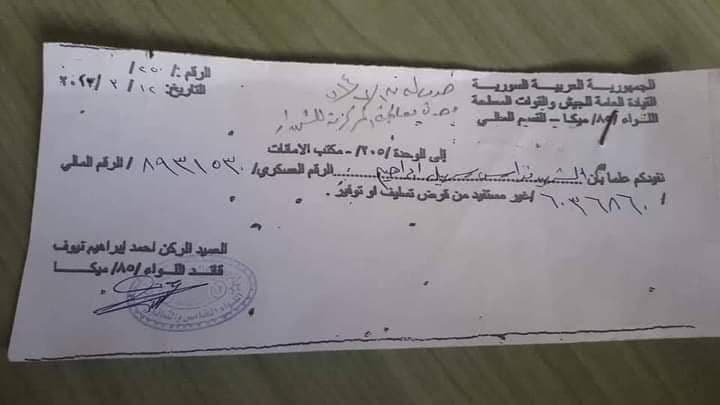 الجمهورية العربية السورية
القيادة العامة للجيش والقوات المسلحة
اللواء /٨٥/ ميكا - القسم المالي
الرقم: / ٢٥٠ /
التاريخ: ١٢ / ٣ / ٢٠٢٣
إلى الوحدة /٢٠٥/ - مكتب الامانات
نفيدكم علما بأن الشهيد فراس ابراهيم الرقم العسكري/ ٨٩٣١٥٣٠ / الرقم المالي
/ ٦٠٣٦٨٦٠ / غير مستفيد من قرض تسليف او توفير .
العميد الركن احمد إبراهيم نيوف
قائد اللواء /٨٥/ ميكا